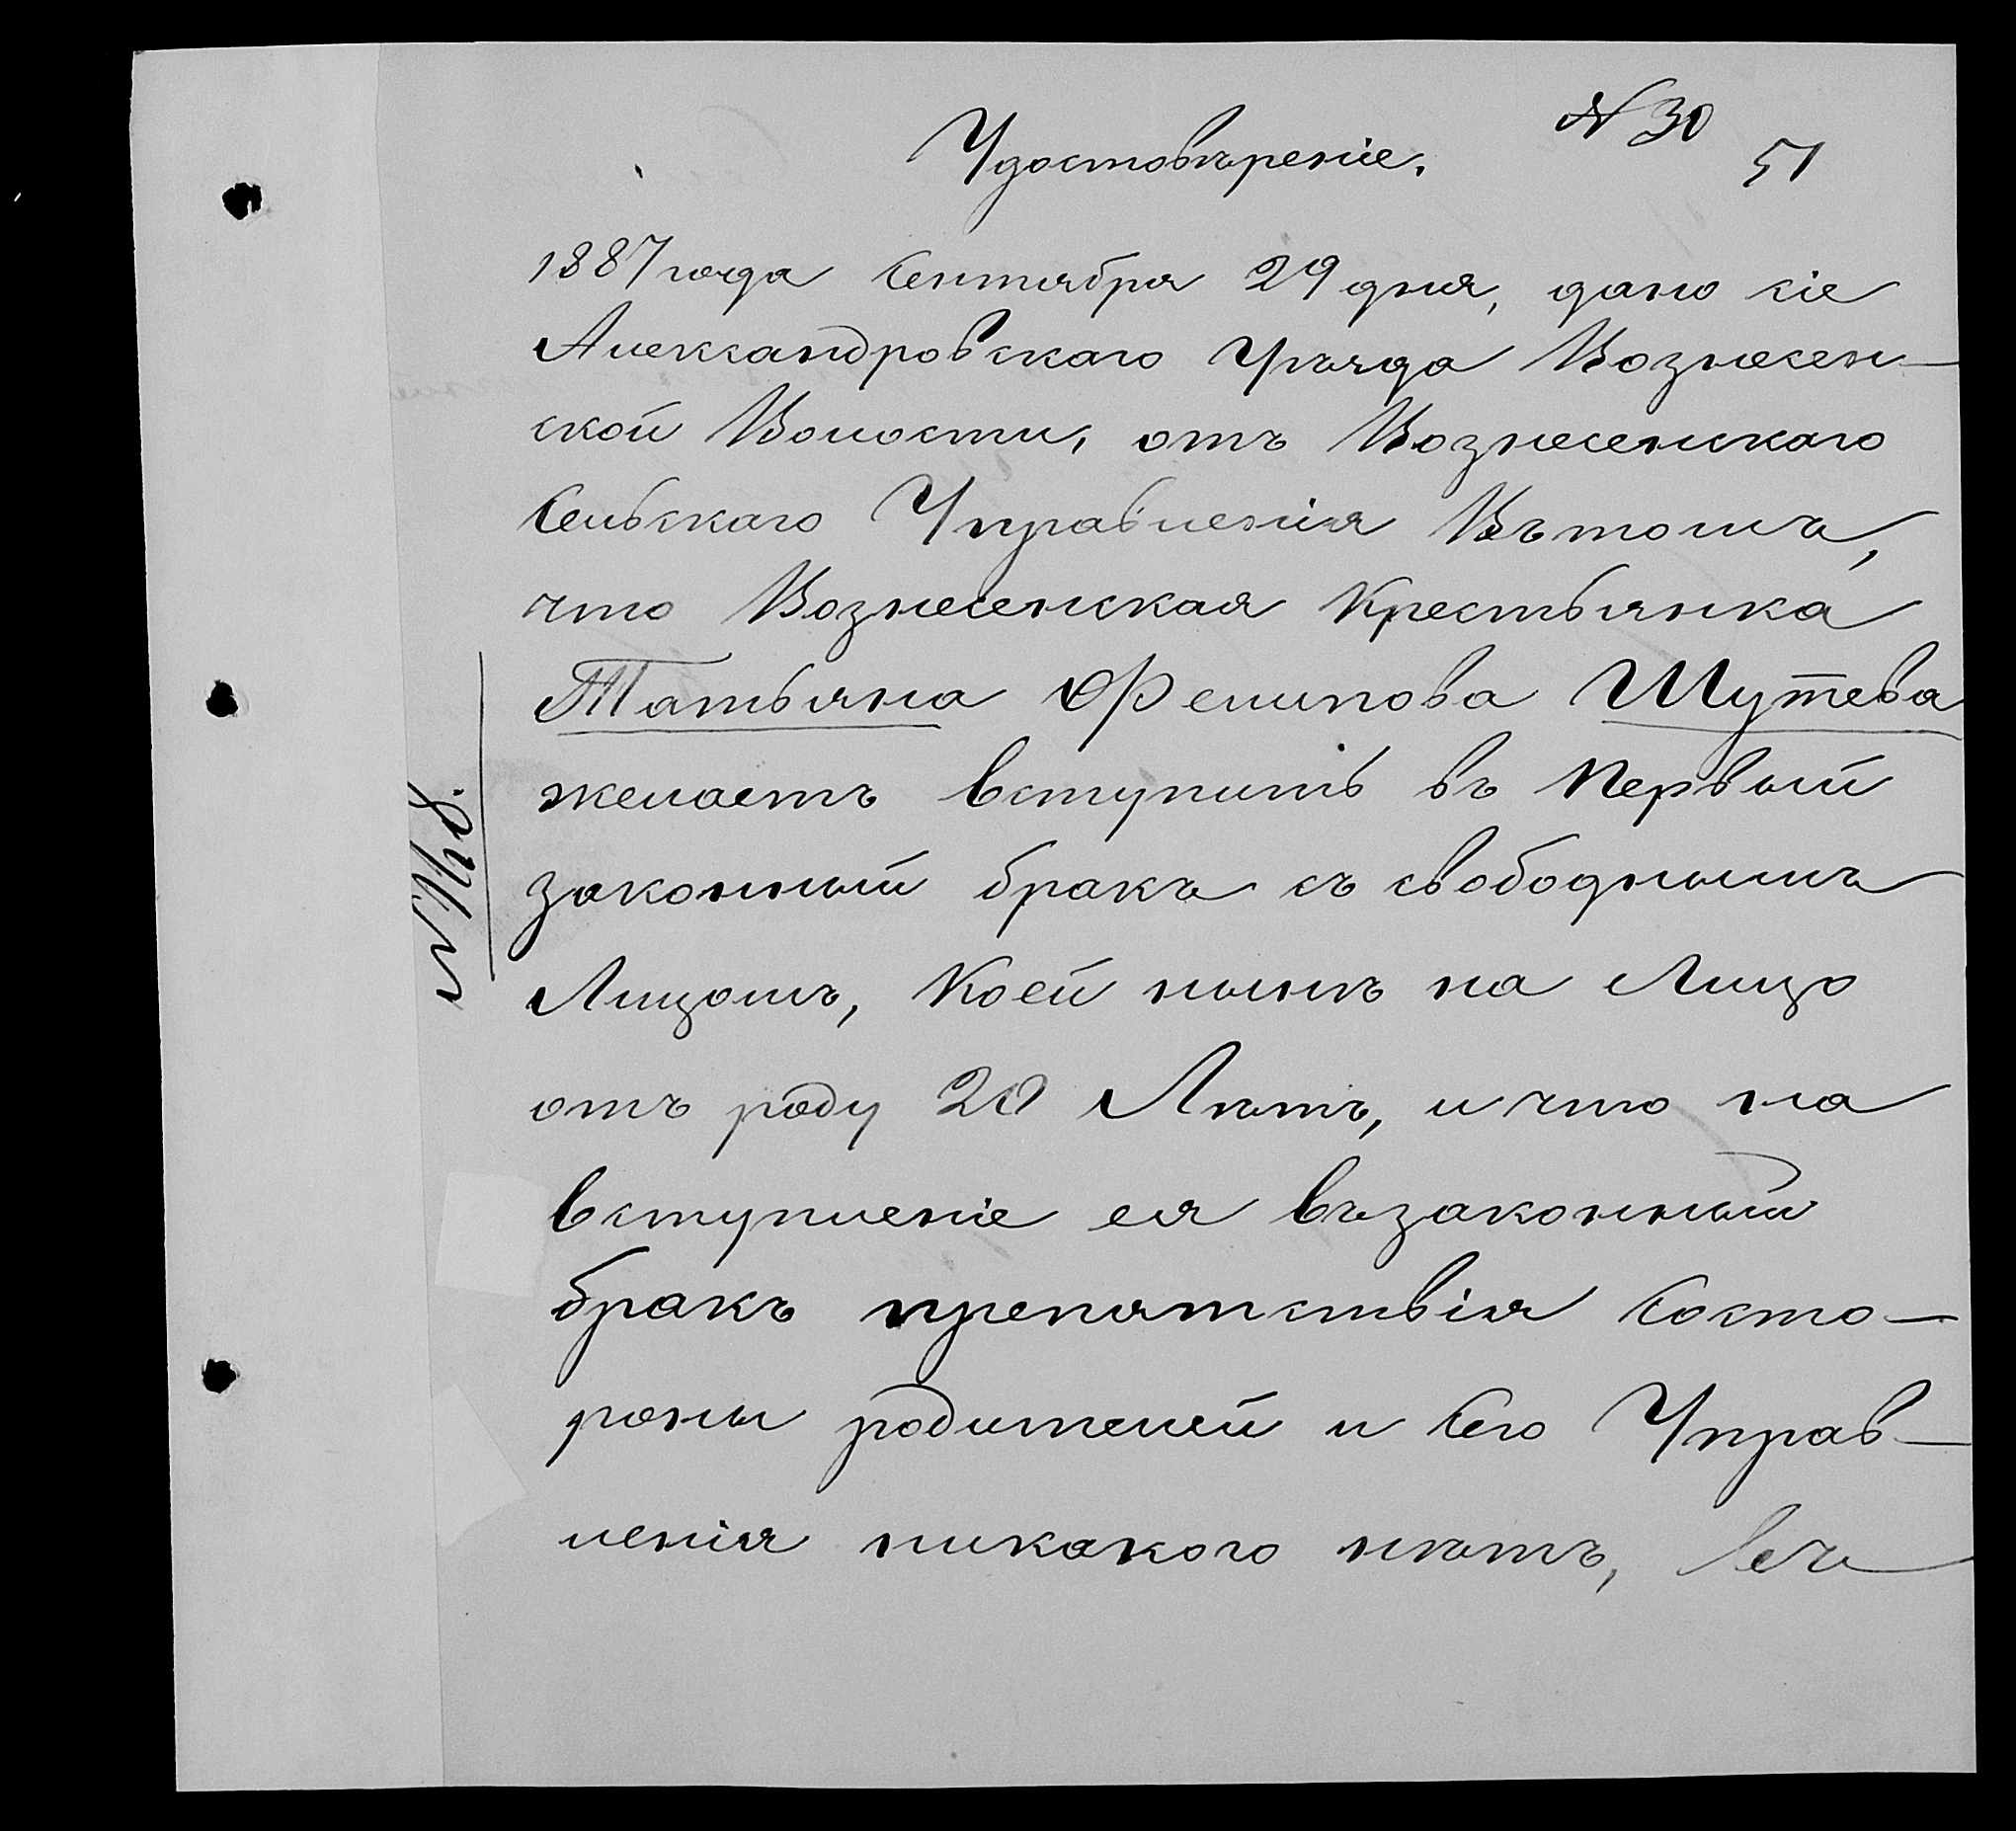 № 30
51
Удостовѣреніе.
1887 года Сентября 29 дня, дано сіе
Александровскаго Уѣзда Вознесен-
ской Волости, отъ Вознесенскаго
Сельскаго Управленія Вътомъ,
что Вознесенская Крестьянка
Татьяна Фелипова Шутева
желаетъ вступить въ Первый
законный бракъ съ свободнымъ
Лицомъ, Коей нынѣ на Лицо
отъ роду 20 Лѣтъ, и что на
вступленіе ея възаконный
бракъ препятствія Состо-
роны родителей и Сего Управ-
ленія никакого нѣтъ, Въ